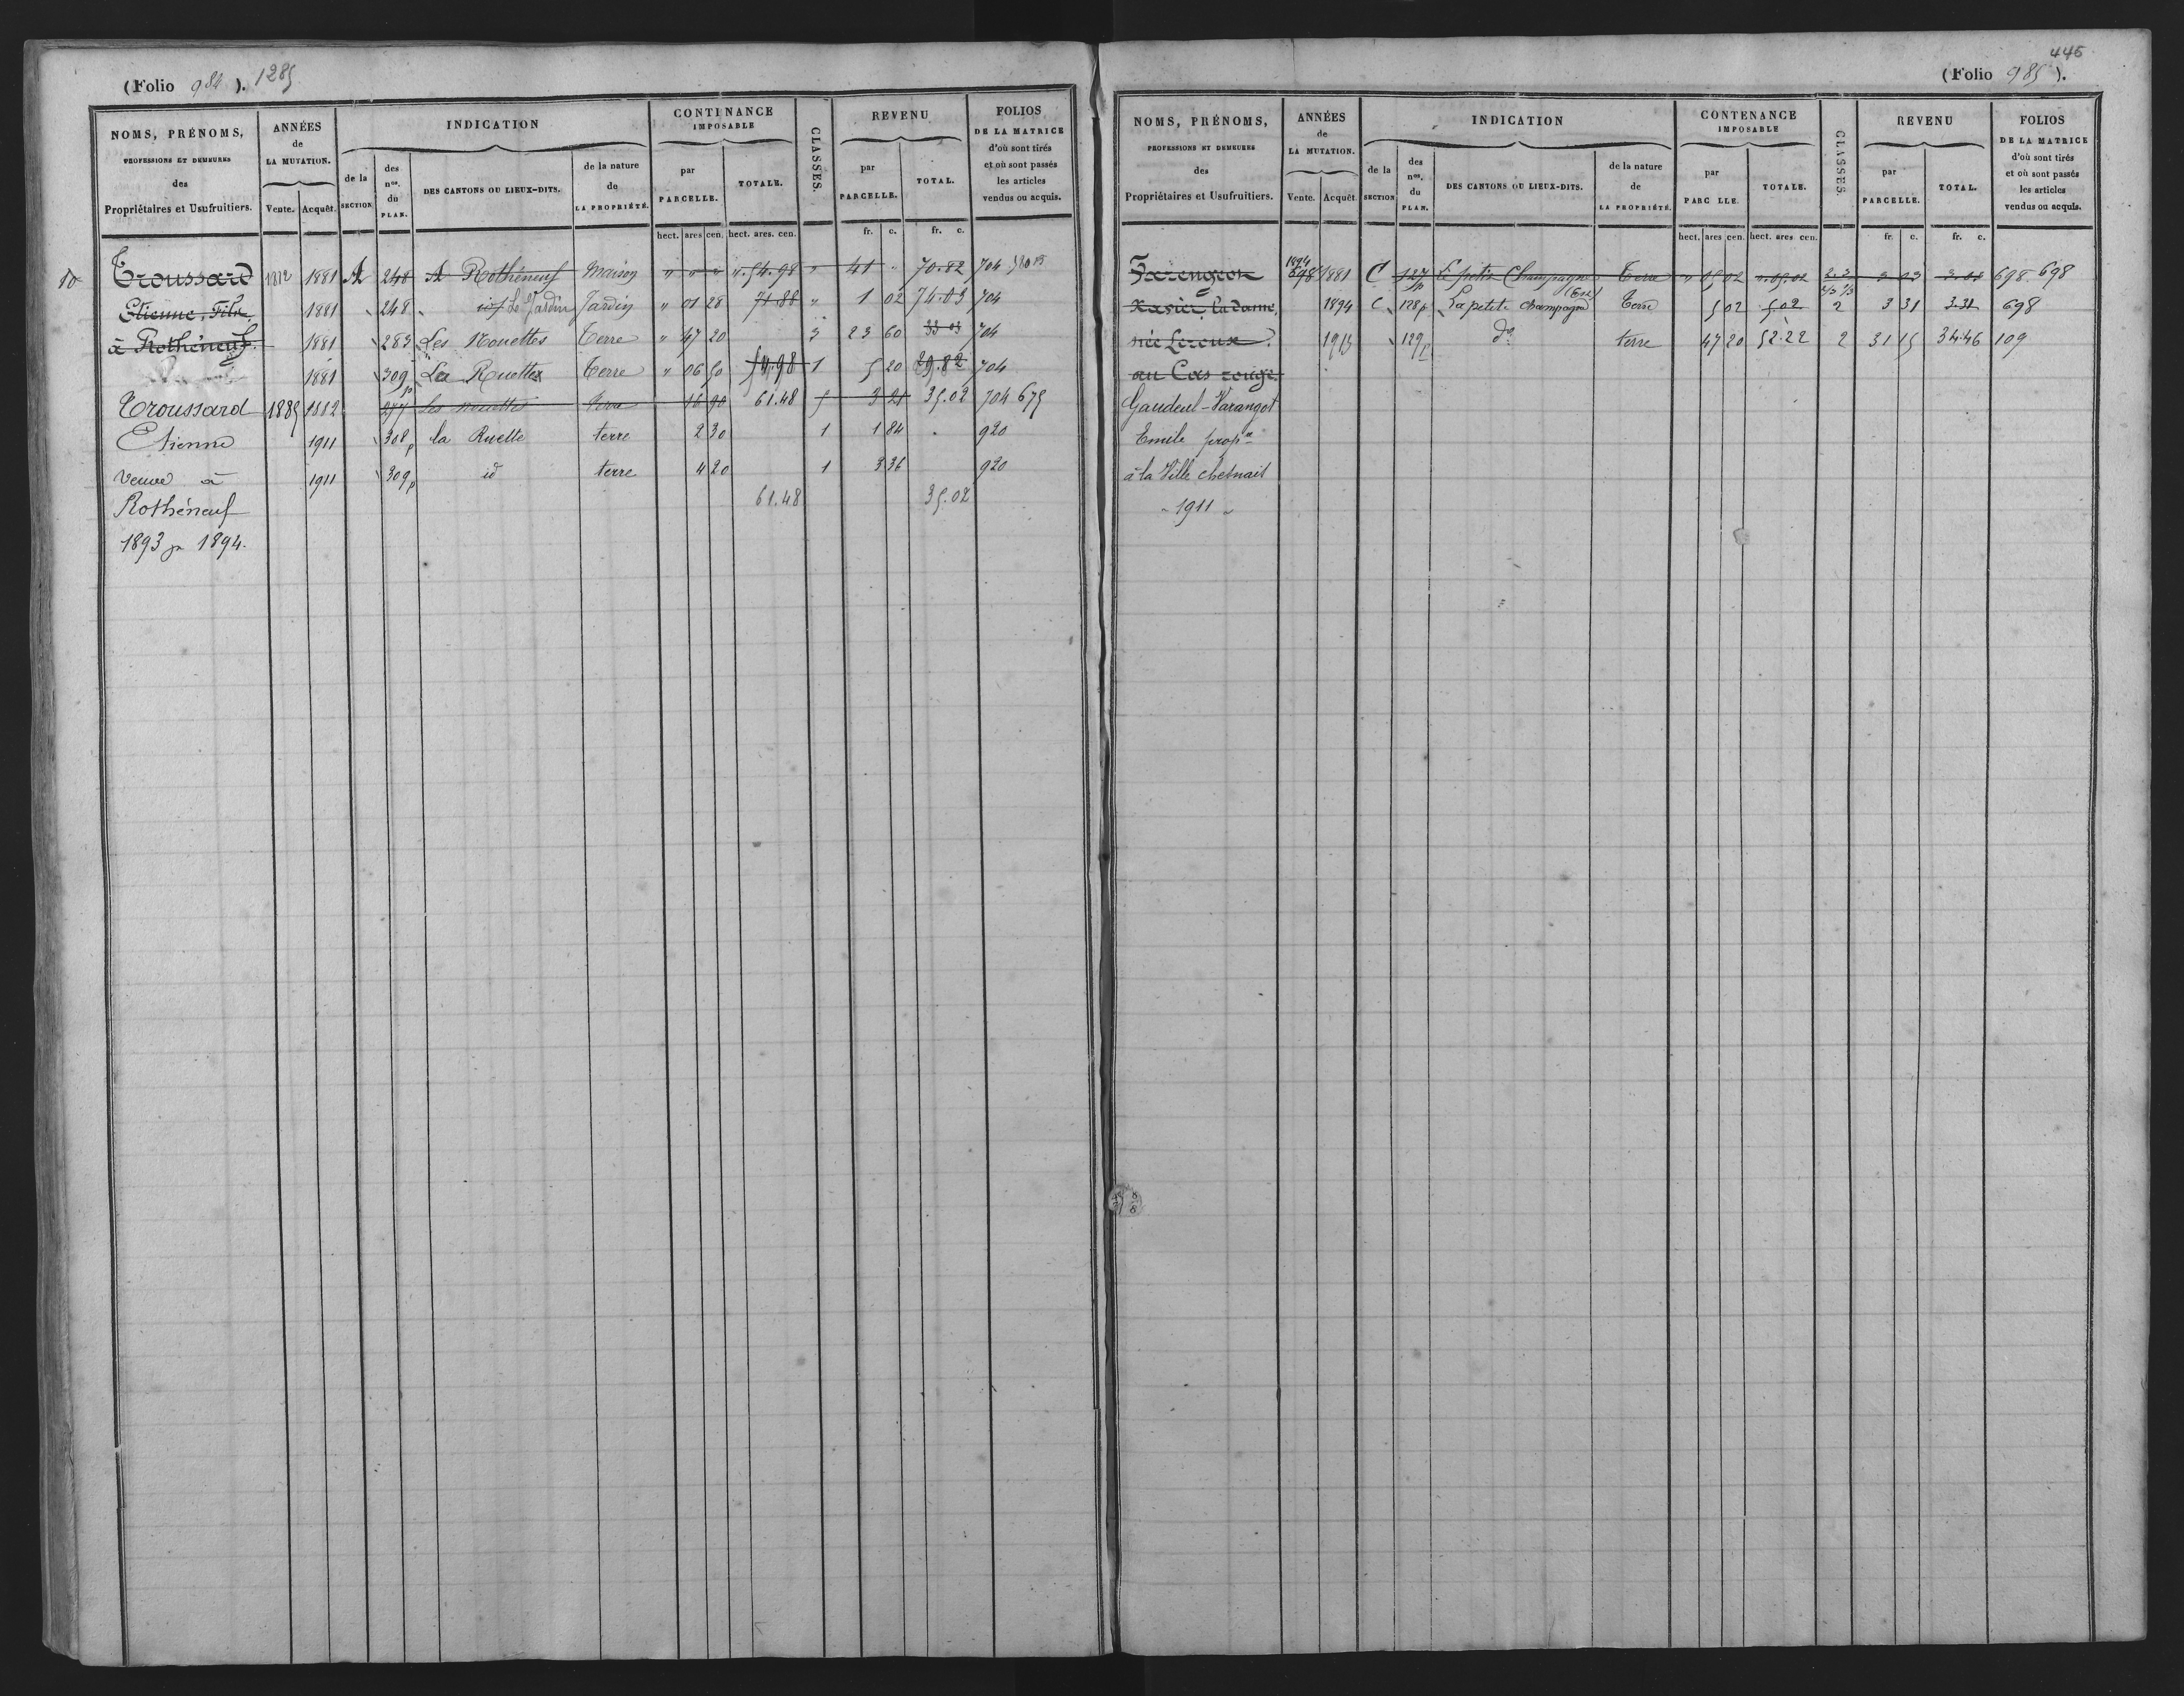 (Folio 984). 1285
NOMS, PRÉNOMS,
PROFESSIONS ET DEMEURES
des
Propriétaires et Usufruitiers.
ANNÉES
de
LA MUTATION.
Vente. Acquêt.
INDICATION
de la
SECTION
des
nos.
du
PLAN.
DES CANTONS OU LIEUX-DITS.
de la nature
de
LA PROPRIÉTÉ.
CONTINANCE
IMPOSABLE
par
PARCELLE.
TOTALE.
CLASSES.
REVENU
par
PARCELLE.
TOTAL.
FOLIOS
DE LA MATRICE
d'où sont tirés
et où sont passés
les articles
vendus ou acquis.
hect. ares cen. hect. ares. cen. fr. c. fr. c.
Troussard 1882 1881 A 248 A Rothéneuf Maison " " " ".54.98 " 41 " 70.82 704
Etienne, Fils, 1881 248 id Le Jardin Jardin " 01 28 71.88 " 1 02 74.03 704
à Rothéneuf. 1881 283 Les Nouettes Terre " 47 20 3 23 60 33 03 704
1881 309p La Ruette Terre " 06 50 54.98 1 5 20 29.82 704
Troussard 1885 1882 277 les nouettes Terre 16 90 61.48 5 3 21 35.02 704 675
Etienne 1911 308p la Ruette terre 2 30 1 1 84 920
veuve à 1911 309p id terre 4 20 1 3 36 920
Rothéneuf 61.48 35.02
1893 pr 1894.
445
(Folio 985).
NOMS, PRÉNOMS,
PROFESSIONS ET DEMEURES
des
Propriétaires et Usufruitiers.
ANNÉES
de
LA MUTATION.
Vente. Acquêt.
INDICATION
de la
SECTION
des
nos.
du
PLAN.
DES CANTONS OU LIEUX-DITS.
de la nature
de
LA PROPRIÉTÉ.
CONTENANCE
IMPOSABLE
par
PARC LLE.
TOTALE.
CLASSES.
REVENU
par
PARCELLE.
TOTAL.
FOLIOS
DE LA MATRICE
d'où sont tirés
et où sont passés
les articles
vendus ou acquis.
hect. ares cen. hect. ares cen. fr. c. fr. c.
1894 1881 C 127p Le petit Champagne Terre " 05 02 ".05.02 2.3 3 03 3.03 698 698
la dame, 1894 C 128p La petite Champagne Terre 5 02 5 02 2 3 31 3.31 698
née Leroux. 1913 129p do terre 47 20 52.22 2 31 15 34.46 109
au Cas rouge.
Gaudeul-Varangot
Emile propre
à la Ville chesnais
- 1911 -